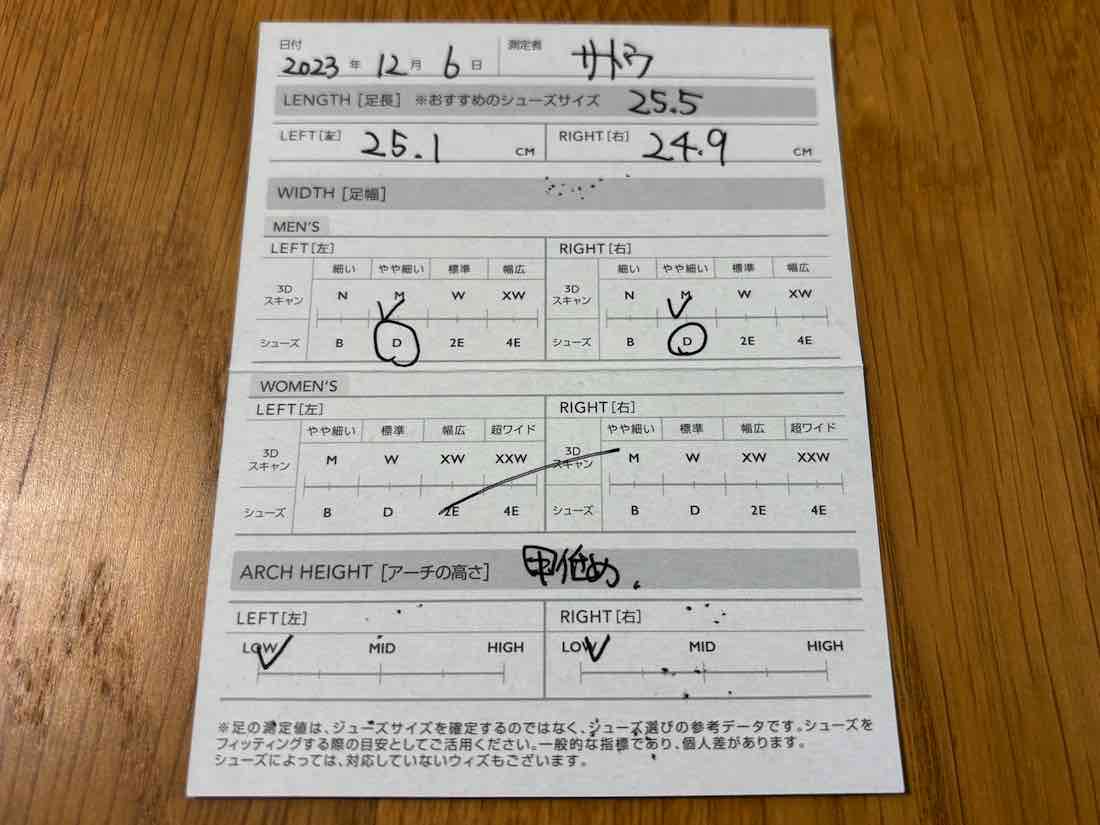 日付 2023 年 12 月 6 日 測定者 サトウ
LENGTH [足長] ※おすすめのシューズサイズ 25.5
LEFT [左] 25.1 CM RIGHT [右] 24.9 CM
WIDTH [足幅]
MEN'S
LEFT [左] RIGHT [右]
細い やや細い 標準 幅広 細い やや細い 標準 幅広
3Dスキャン N M W XW 3Dスキャン N M W XW
シューズ B D 2E 4E シューズ B D 2E 4E
WOMEN'S
LEFT [左] RIGHT [右]
やや細い 標準 幅広 超ワイド やや細い 標準 幅広 超ワイド
3Dスキャン M W XW XXW 3Dスキャン M W XW XXW
シューズ B D 2E 4E シューズ B D 2E 4E
ARCH HEIGHT [アーチの高さ] 甲低め.
LEFT [左] RIGHT [右]
LOW MID HIGH LOW MID HIGH
※足の測定値は、シューズサイズを確定するのではなく、シューズ選びの参考データです。シューズを
フィッティングする際の目安としてご活用ください。一般的な指標であり、個人差があります。
シューズによっては、対応していないウィズもございます。